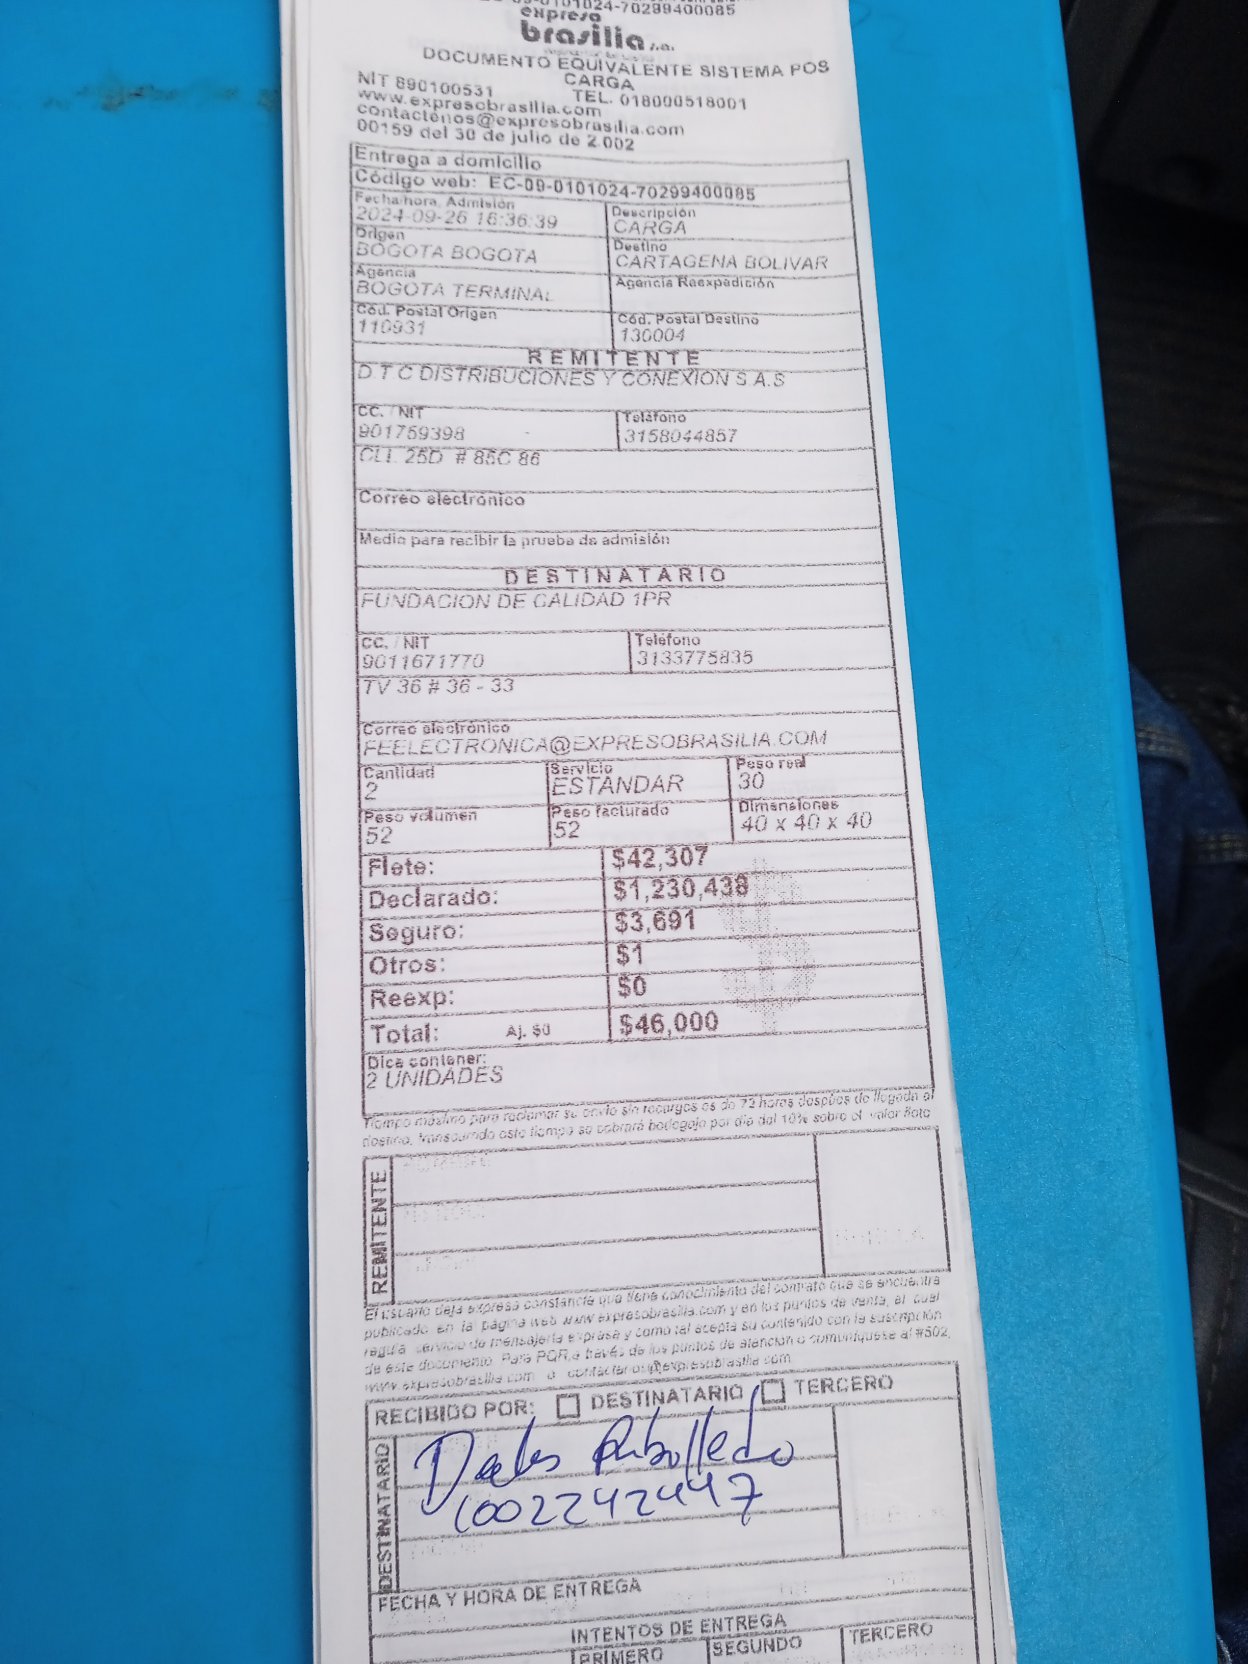 09-0101024-70299400085
expreso
brasilia s.a.
DOCUMENTO EQUIVALENTE SISTEMA POS
CARGA
NIT 890100531 TEL. 018000518001
www.expresobrasilia.com
contactenos@expresobrasilia.com
00159 del 30 de julio de 2.002
Entrega a domicilio
Código web: EC-09-0101024-70299400085
Fecha/hora, Admisión Descripción
2024-09-26 16:36:39 CARGA
Origen Destino
BOGOTA BOGOTA CARTAGENA BOLIVAR
Agencia Agencia Reexpedición
BOGOTA TERMINAL
Cód. Postal Origen Cód. Postal Destino
110931 130004
REMITENTE
D T C DISTRIBUCIONES Y CONEXION S A.S
CC. / NIT Teléfono
901759398 3158044857
CLL 25D # 85C 86
Correo electrónico
Medio para recibir la prueba de admisión
DESTINATARIO
FUNDACION DE CALIDAD 1PR
CC. / NIT Teléfono
9011671770 3133775835
TV 36 # 36 - 33
Correo electrónico
FEELECTRONICA@EXPRESOBRASILIA.COM
Cantidad Servicio Peso real
2 ESTANDAR 30
Peso volumen Peso facturado Dimensiones
52 52 40 x 40 x 40
Flete: $42,307
Declarado: $1,230,438
Seguro: $3,691
Otros: $1
Reexp: $0
Total: Aj. $0 $46,000
Dice contener:
2 UNIDADES
Tiempo máximo para reclamar su envío sin recargos es de 72 horas después de llegada al
destino, transcurrido este tiempo se cobrará bodegaje por día del 10% sobre el valor flete
REMITENTE
El usuario deja expreso constancia que tiene conocimiento del contrato que se encuentra
publicado en la página web www.expresobrasilia.com y en los puntos de venta, el cual
regula servicio de mensajería expresa y como tal acepta su contenido con la suscripción
de este documento. Para PQR a través de los puntos de atención o comuníquese al #502,
www.expresobrasilia.com o
RECIBIDO POR: DESTINATARIO TERCERO
DESTINATARIO
1002242447
FECHA Y HORA DE ENTREGA
INTENTOS DE ENTREGA
PRIMERO SEGUNDO TERCERO